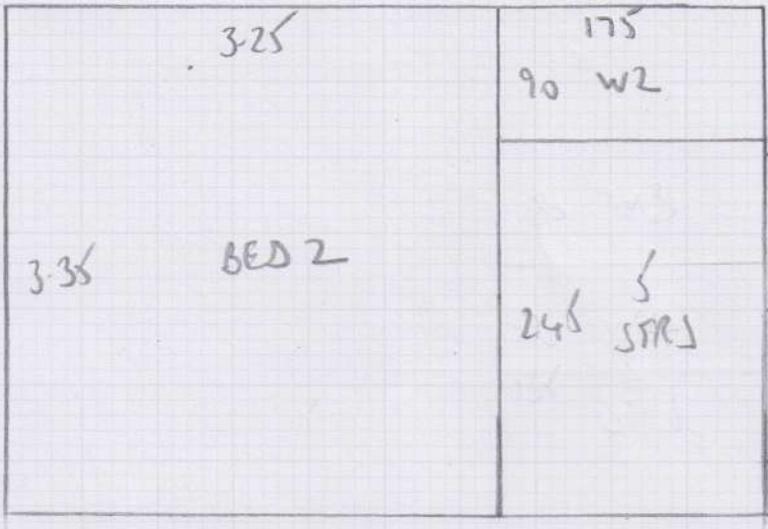 3.25
175
90 W2
3.35 BED 2
245 5
STRS